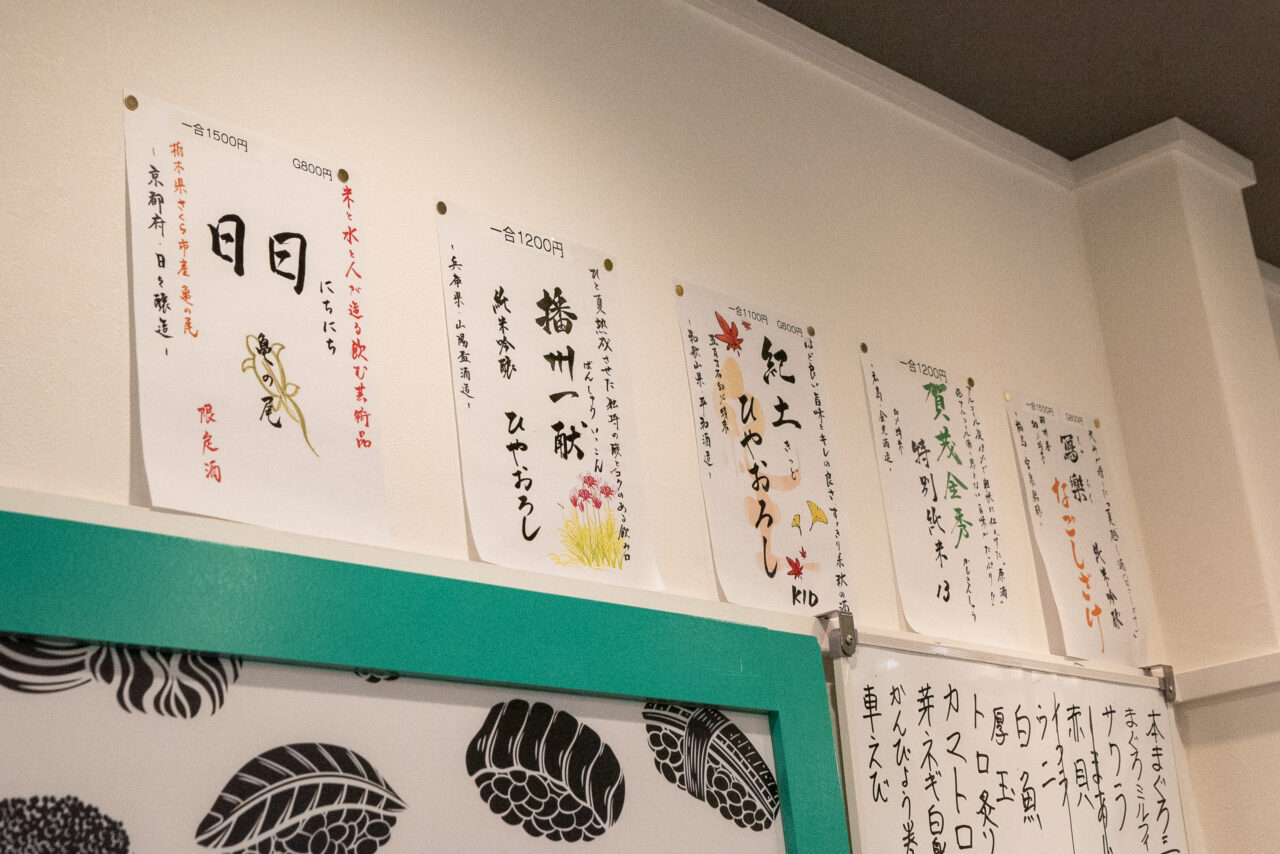 一合1500円
G800円
米と水と人が造る飲む芸術品
にちにち
日日
亀の尾
限定酒
栃木県さくら市産 亀の尾
-京都府・日々醸造-
一合1200円
ひと夏熟成させた
のある飲み口
ばんしゅういっこん
播州一献
ひやおろし
純米吟醸
-兵庫県・山陽盃酒造-
一合1100円
G600円
ほど良い旨味とキレの良さすっきり系秋の酒
きっど
紀土
ひやおろし
KID
-和歌山県 平和酒造-
一合1200円
賀茂金秀
特別純米 13
一合1500円
G800円
寫樂
純米吟醸
なごしざけ
本まぐろ
まぐろミルフィ
サワラ
しまあじ
赤貝
イクラ
ウニ
白魚
厚玉
トロ炙り
カマトロ
芽ネギ白
かんぴょう巻
車えび